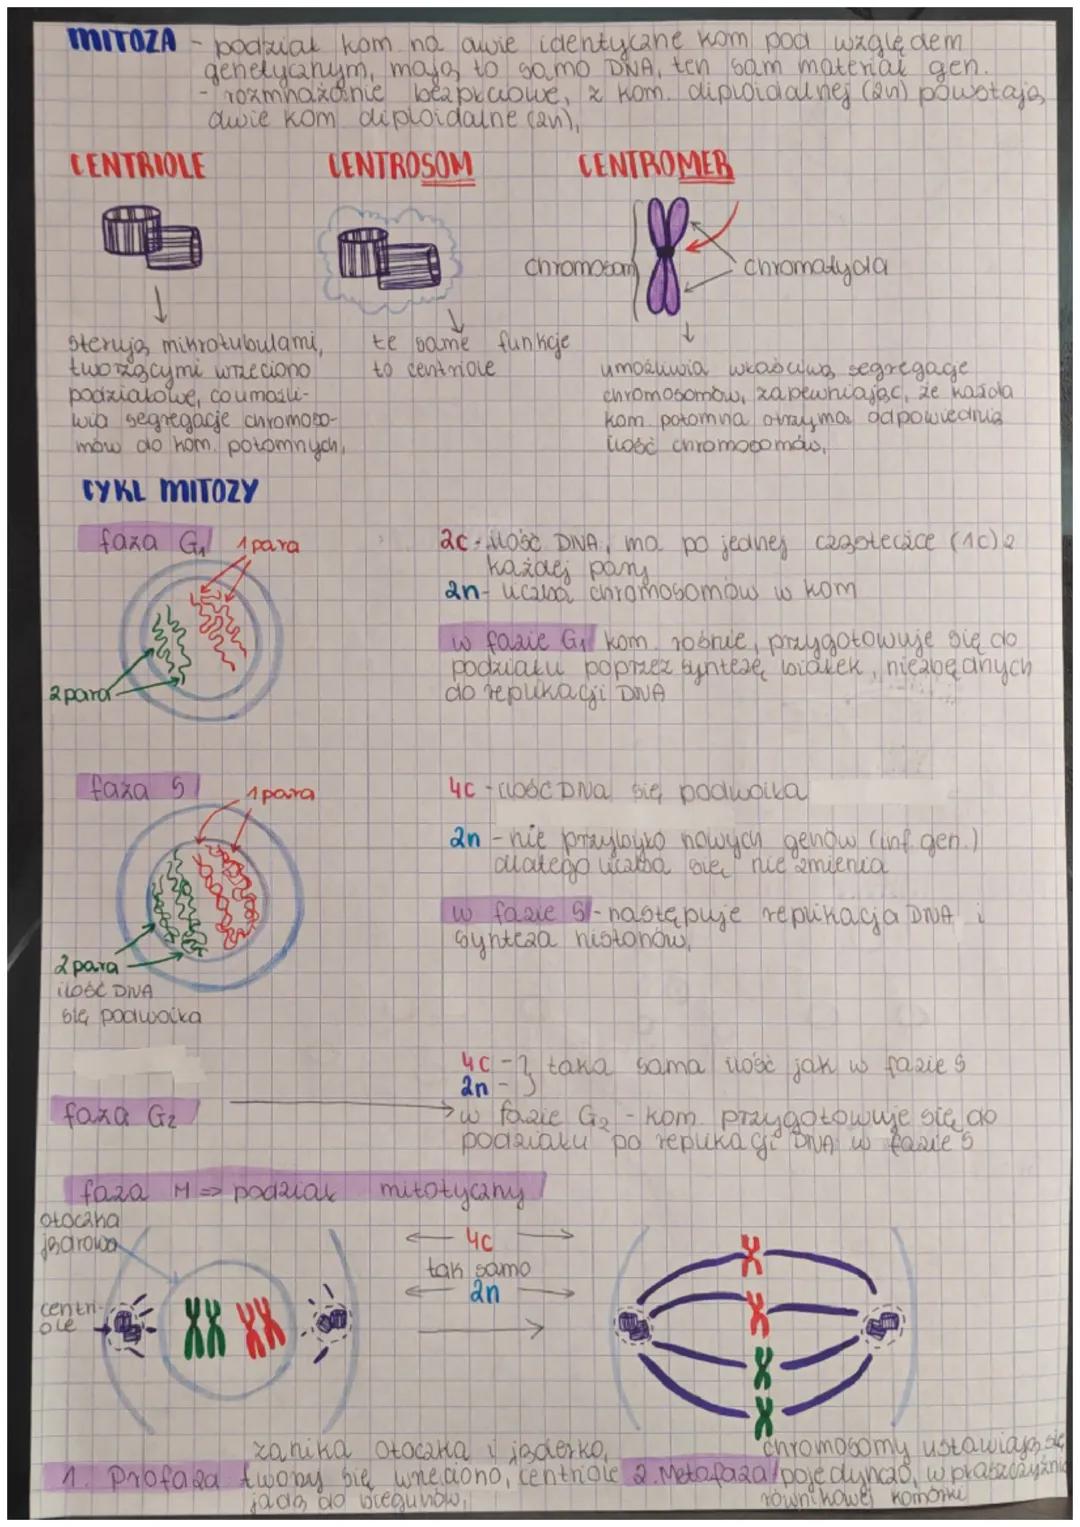 MITOZA - podział kom. na dwie identyczne kom. pod względem
genetycznym, mają to samo DNA, ten sam materiał gen.
- rozmnażanie bezpłciowe, z kom. diploidalnej (2n) powstają
dwie kom. diploidalne (2n),
CENTRIOLE
CENTROSOM
CENTROMER
chromosom
chromatyda
sterują mikrotubulami,
tworzącymi wrzeciono
podziałowe, co umożli-
wia segregację chromoso-
mów do kom. potomnych,
te same funkcje
to centriole
umożliwia właściwą segregację
chromosomów, zapewniając, że każda
kom. potomna otrzyma odpowiednią
ilość chromosomów,
CYKL MITOZY
faza G1
1 para
2 para
2c - ilość DNA, ma po jednej cząsteczce (1c) z
każdej pary
2n - liczba chromosomów w kom
w fazie G1 kom. rośnie, przygotowuje się do
podziału poprzez syntezę białek, niezbędnych
do replikacji DNA
faza S
1 para
2 para
ilość DNA
się podwoiła
4c - ilość DNA się podwoiła
2n - nie przybyło nowych genów (inf. gen.)
dlatego liczba się nie zmienia
w fazie S - następuje replikacja DNA i
synteza histonów,
4c - } taka sama ilość jak w fazie S
2n - }
faza G2
w fazie G2 - kom. przygotowuje się do
podziału po replikacji DNA w fazie S
faza M => podział mitotyczny
otoczka
jądrowa
centri-
ole
4c
tak samo
2n
1. Profaza
zanika otoczka i jąderko,
tworzy się wrzeciono, centriole
jadą do biegunów,
2. Metafaza
chromosomy ustawiają się
pojedynczo, w płaszczyźnie
równikowej komórki